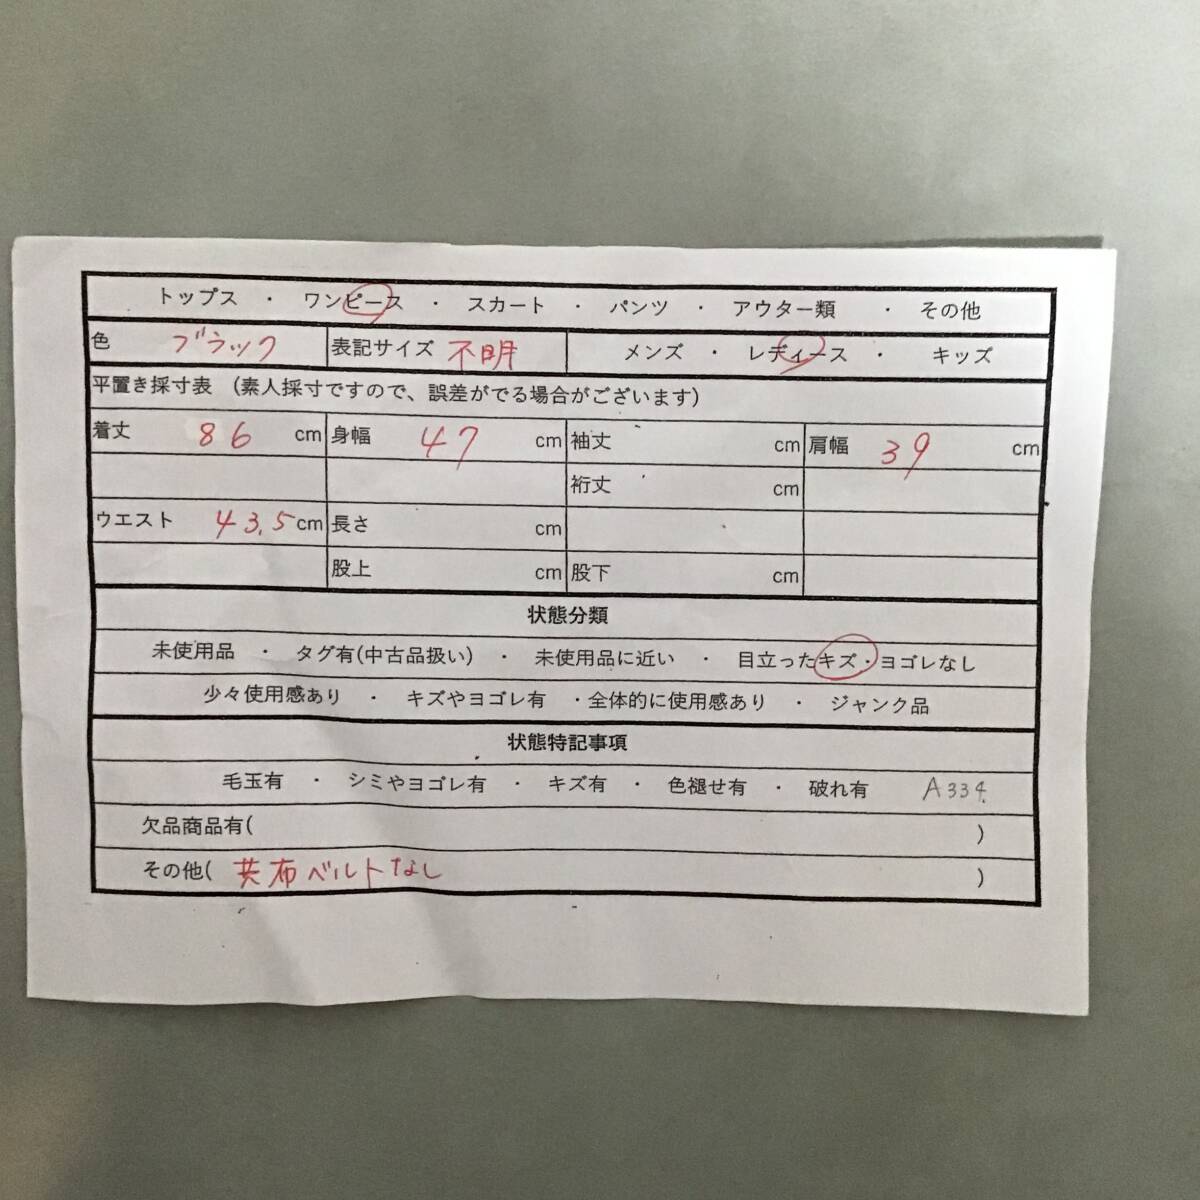 トップス ・ ワンピース ・ スカート ・ パンツ ・ アウター類 ・ その他
色 ブラック 表記サイズ 不明 メンズ ・ レディース ・ キッズ
平置き採寸表 (素人採寸ですので、誤差がでる場合がございます)
着丈 86 cm 身幅 47 cm 袖丈 cm 肩幅 39 cm
裄丈 cm
ウエスト 43.5 cm 長さ cm
股上 cm 股下 cm
状態分類
未使用品 ・ タグ有(中古品扱い) ・ 未使用品に近い ・ 目立ったキズ・ヨゴレなし
少々使用感あり ・ キズやヨゴレ有 ・全体的に使用感あり ・ ジャンク品
状態特記事項
毛玉有 ・ シミやヨゴレ有 ・ キズ有 ・ 色褪せ有 ・ 破れ有 A334
欠品商品有( )
その他( 共布ベルトなし )